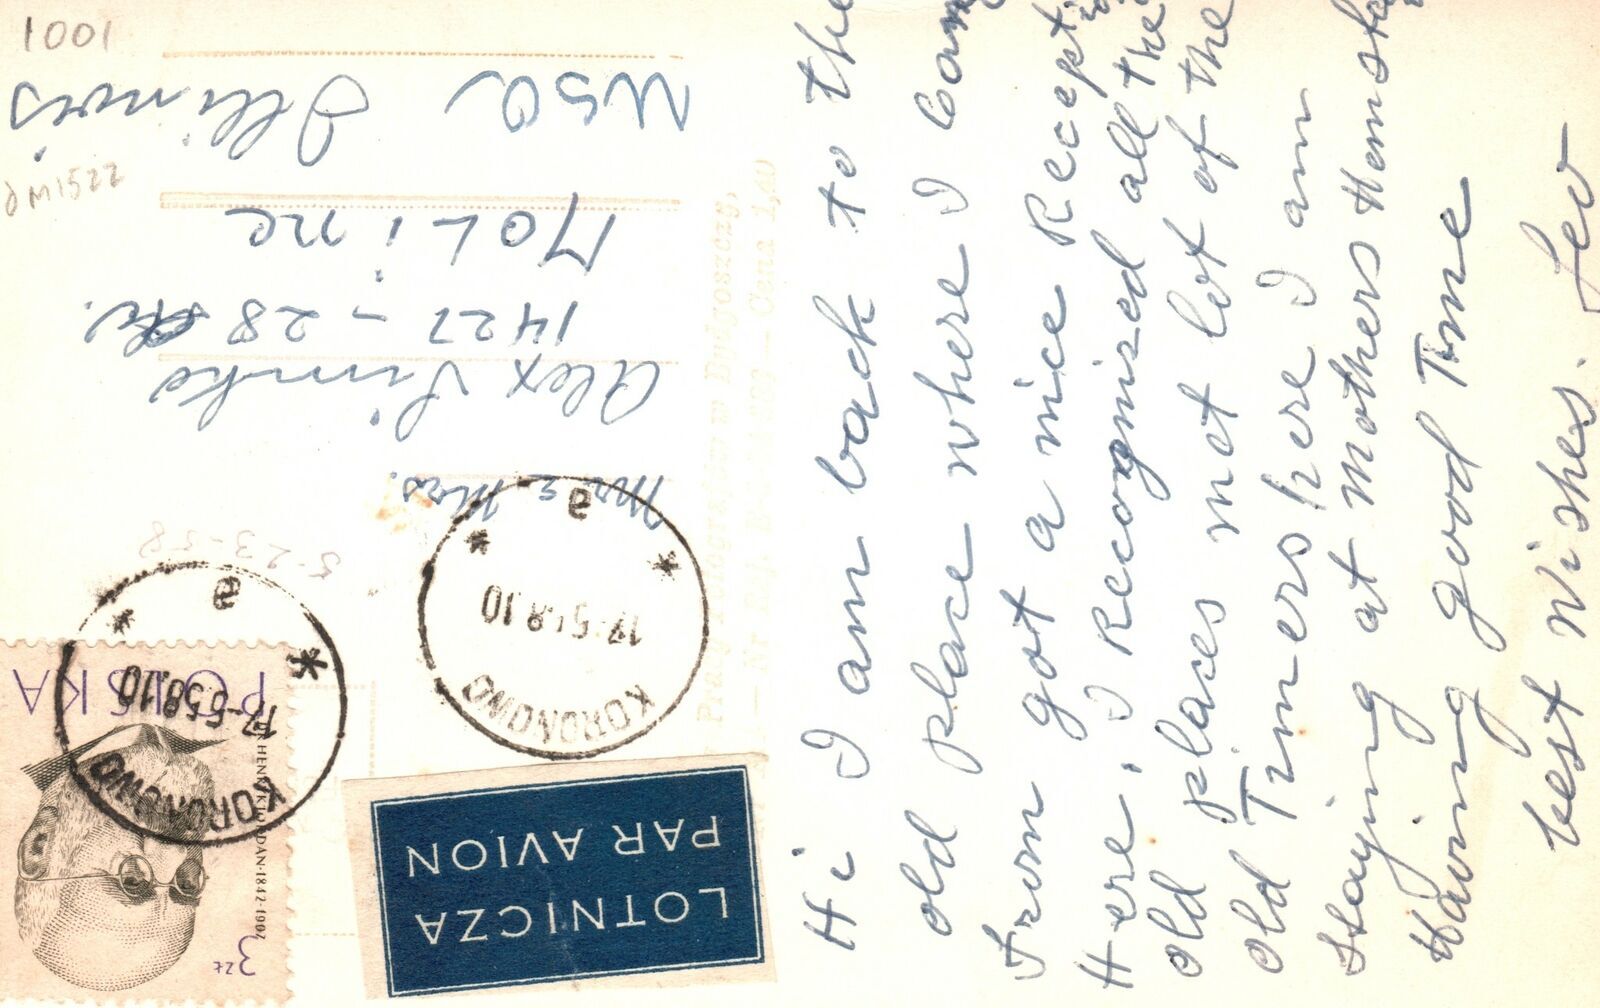 Hi I am back to the
old place where I came
From got a nice Reception
Here, I Recognized all the
old places met lot of the
old Timers here I am
staying at mothers Hemsta
Having good Time
best Wishes. Leo
Mr. & Mrs.
Alex Simko
1427 - 28 Ave.
MoLine
USA Illinois
1001
5-23-58
POLSKA
HENRYK JORDAN·1842·1907
3 zł
KORONOWO
17.-5.58.10
a
KORONOWO
17.-5.58.10
a
LOTNICZA
PAR AVION
w Bydgoszczy,
Cena 1,40